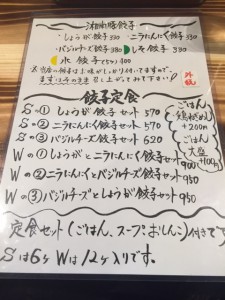 湘南豚餃子
・しょうが餃子 330 ・ニラにんにく餃子 330
・バジルチーズ餃子 380 ・しそ餃子 330
・水餃子
餃子定食
Sの① しょうが餃子セット 570
Sの② ニラにんにく餃子セット 570
Sの③ バジルチーズ餃子セット 620
Wの① しょうがとニラにんにく餃子セット 900
Wの② ニラにんにくとバジルチーズ餃子セット 950
Wの③ バジルチーズとしょうが餃子セット 950
ごはん
+200円
ごはん
大盛
+100円
定食セット(ごはん、スープ、おしんこ)付きです
Sは6ヶ Wは12ヶ入りです。